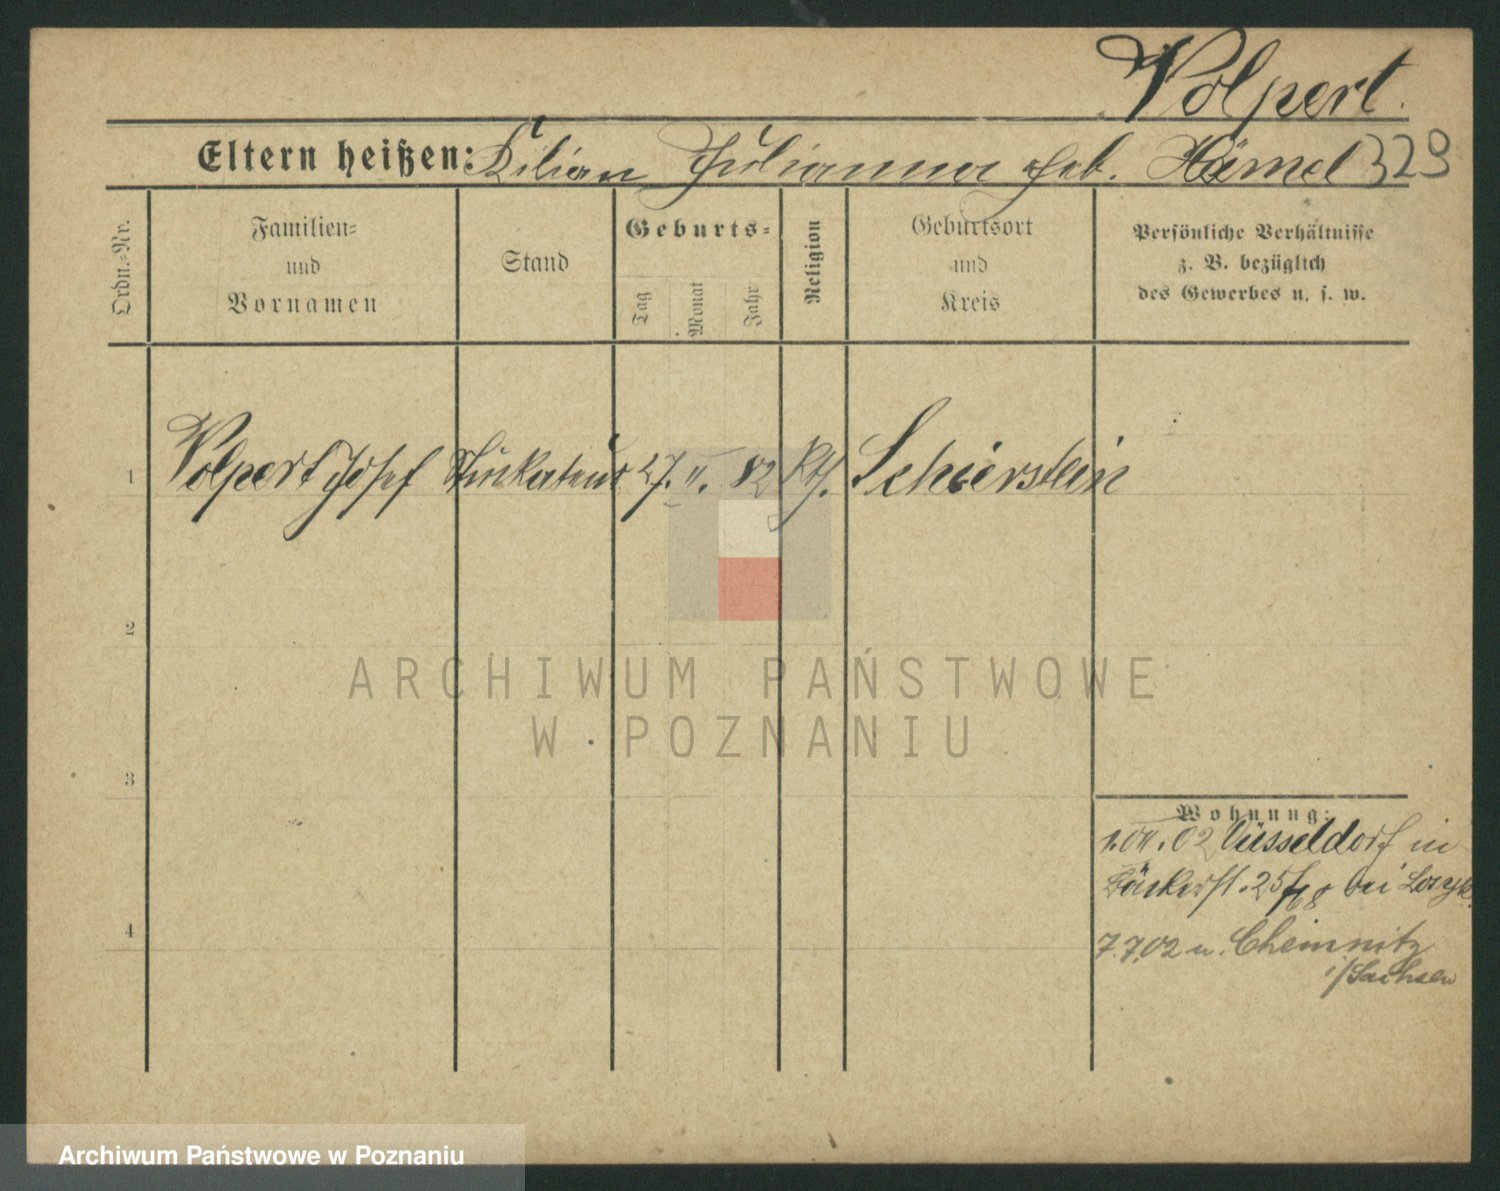 Volpert.
Eltern heißen: Kilian Julianna geb. Hämel 329
Ordn.-Nr.
Familien- und Vornamen
Stand
Geburts-
Tag
Monat
Jahr
Religion
Geburtsort und Kreis
Persönliche Verhältnisse
z. B. bezüglich
des Gewerbes u. s. w.
1 Volpert Josef Stuckateur 27. II. 82 Kth. Schierstein
2
3
4
ARCHIWUM PAŃSTWOWE
W POZNANIU
Wohnung:
02 Düsseldorf in
Bäckerst. 25 bei
7.7.02 n. Chemnitz
i/Sachsen
Archiwum Państwowe w Poznaniu